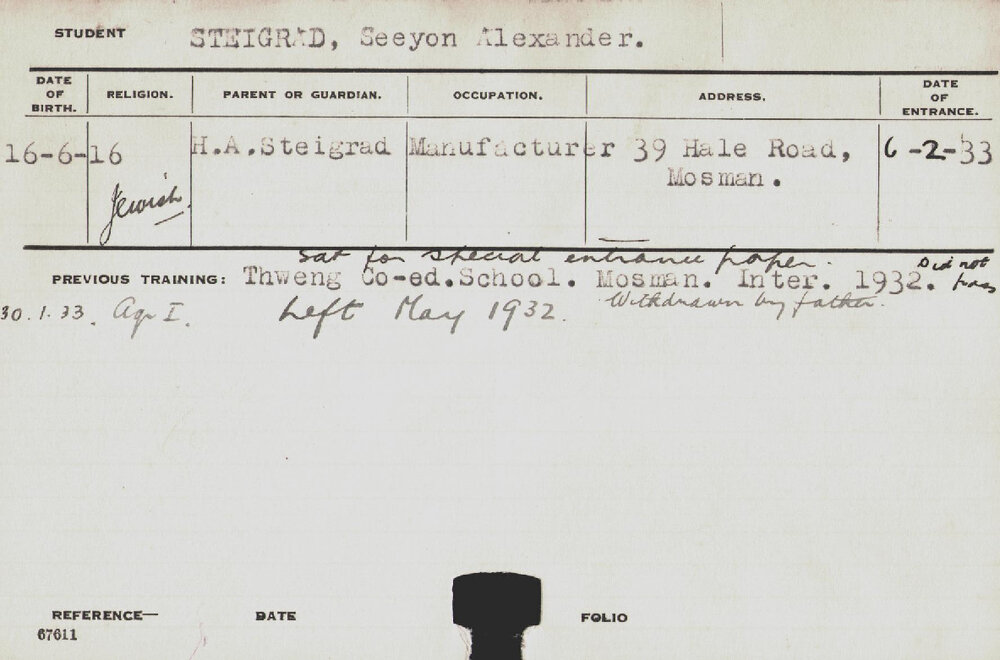 STUDENT STEIGRAD, Seeyon Alexander.
DATE OF BIRTH. RELIGION. PARENT OR GUARDIAN. OCCUPATION. ADDRESS. DATE OF ENTRANCE.
16-6-16 H.A.Steigrad Manufacturer 39 Hale Road, 6-2-33
Mosman.
Jewish.
Sat for special entrance paper. Did not
PREVIOUS TRAINING: Thweng Co-ed.School. Mosman. Inter. 1932. pass
30.1.33. Ag I. Left May 1932. Withdrawn by father.
REFERENCE— DATE FOLIO
67611